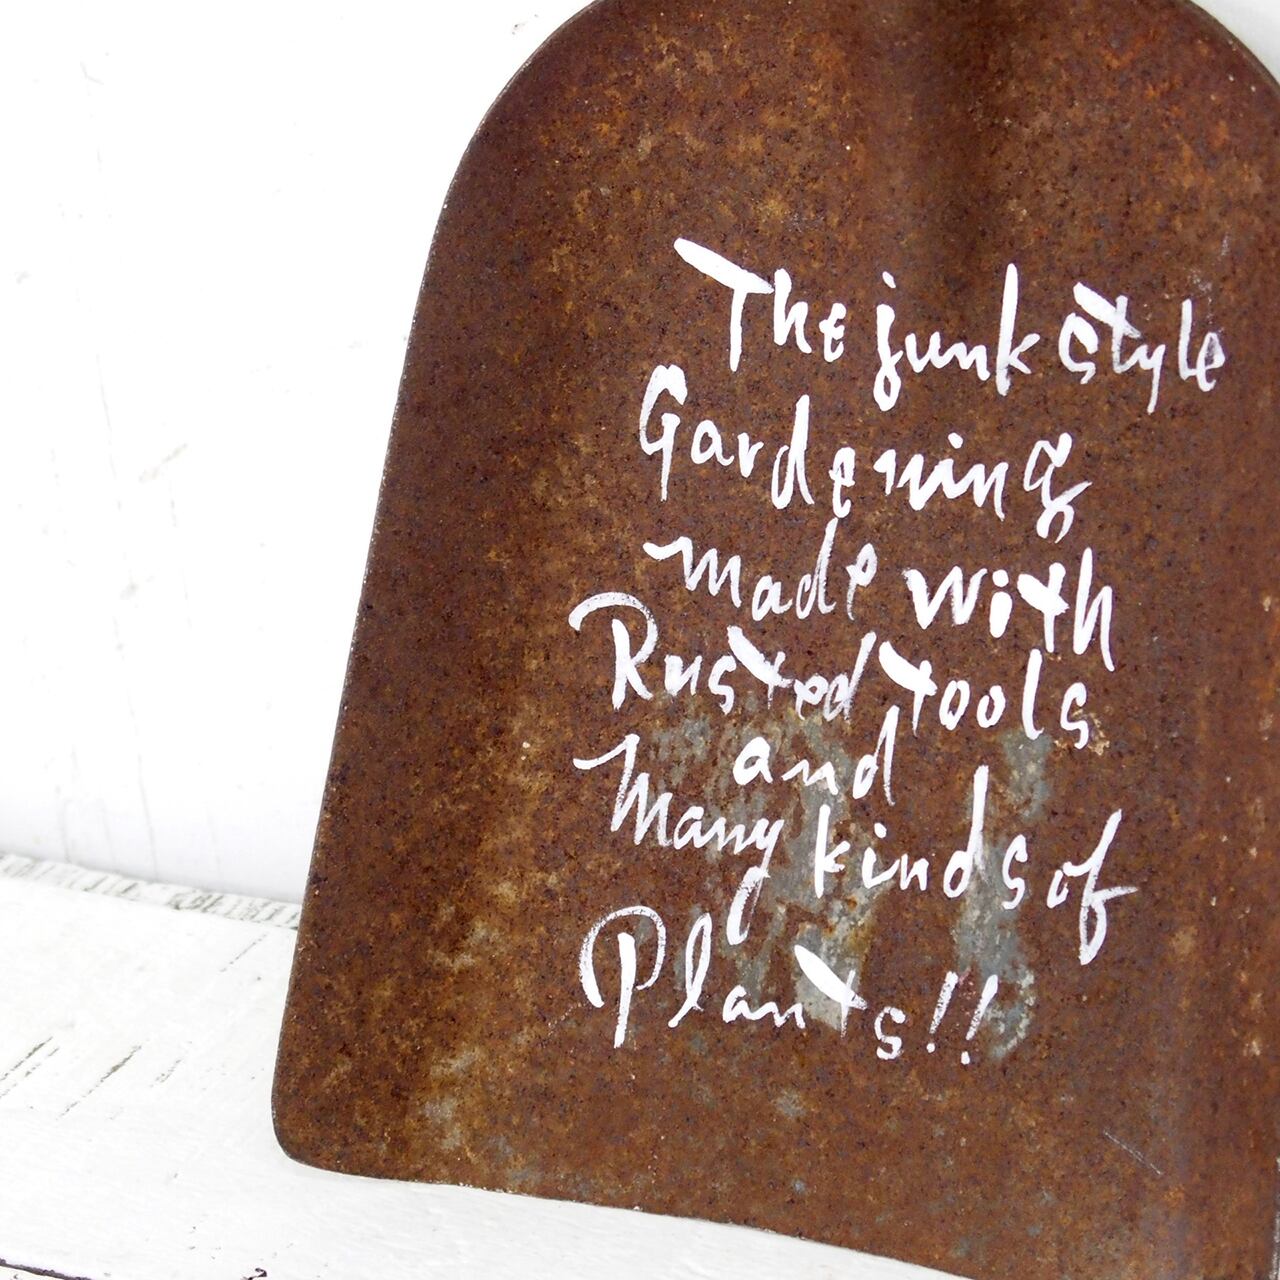 The junk style
Gardening
made with
Rusted tools
and
Many kinds of
Plants!!